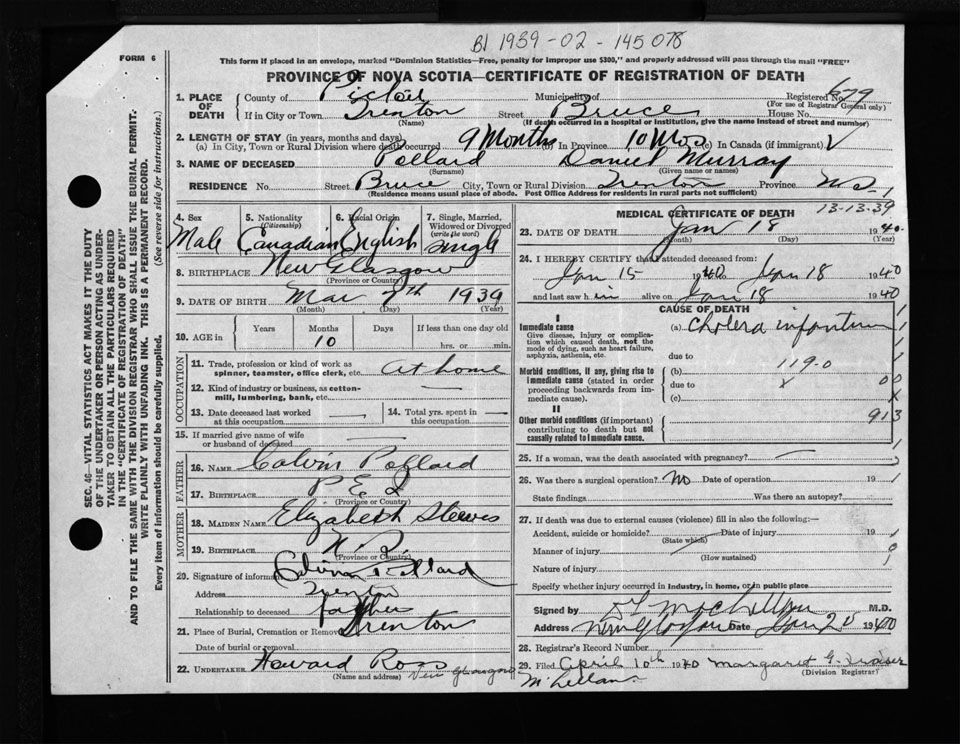 B1 1939-02-145078
FORM 6
This form if placed in an envelope, marked "Dominion Statistics—Free, penalty for improper use $300," and properly addressed will pass through the mail "FREE"
PROVINCE OF NOVA SCOTIA—CERTIFICATE OF REGISTRATION OF DEATH
1. PLACE OF DEATH County of Pictou Municipality of Registered No. 679
(For use of Registrar General only)
If in City or Town Trenton (Name) Street Bruce House No.
(If death occurred in a hospital or institution, give the name instead of street and number)
2. LENGTH OF STAY (in years, months and days)
(a) In City, Town or Rural Division where death occurred 9 Months (b) In Province 10 Mos (c) In Canada (if immigrant)
3. NAME OF DECEASED Pollard Daniel Murray
(Surname) (Given name or names)
RESIDENCE No. Street Bruce City, Town or Rural Division Trenton Province N.S.
(Residence means usual place of abode. Post Office Address for residents in rural parts not sufficient)
4. Sex Male
5. Nationality (Citizenship) Canadian
6. Racial Origin English
7. Single, Married, Widowed or Divorced (write the word) Single
8. BIRTHPLACE New Glasgow
(Province or Country)
9. DATE OF BIRTH Mar 7th 1939
(Month) (Day) (Year)
10. AGE in Years Months 10 Days If less than one day old hrs. or min.
OCCUPATION
11. Trade, profession or kind of work as spinner, teamster, office clerk, etc. At home
12. Kind of industry or business, as cotton-mill, lumbering, bank, etc. —
13. Date deceased last worked at this occupation —
14. Total yrs. spent in this occupation —
15. If married give name of wife or husband of deceased —
FATHER
16. NAME Calvin Pollard
17. BIRTHPLACE P E I
(Province or Country)
MOTHER
18. MAIDEN NAME Elizabeth Steeves
19. BIRTHPLACE N.B.
(Province or Country)
20. Signature of informant Calvin Pollard
Address Trenton
Relationship to deceased father
21. Place of Burial, Cremation or Removal Trenton
Date of burial or removal
22. UNDERTAKER Howard Ross New Glasgow
(Name and address)
MEDICAL CERTIFICATE OF DEATH 13-13-39
23. DATE OF DEATH Jan 18 1940
(Month) (Day) (Year)
24. I HEREBY CERTIFY that I attended deceased from:
Jan 15 1940 to Jan 18 1940
and last saw h im alive on Jan 18 1940
CAUSE OF DEATH
I
Immediate cause
Give disease, injury or complication which caused death, not the mode of dying, such as heart failure, asphyxia, asthenia, etc.
(a) Cholera infantum
due to
Morbid conditions, if any, giving rise to immediate cause (stated in order proceeding backwards from immediate cause).
(b) 119-0
due to x 00
(c) x
II
Other morbid conditions (if important) contributing to death but not causally related to immediate cause.
913
25. If a woman, was the death associated with pregnancy? —
26. Was there a surgical operation? No Date of operation 19
State findings Was there an autopsy?
27. If death was due to external causes (violence) fill in also the following:—
Accident, suicide or homicide? Date of injury 19
(State which)
Manner of injury
(How sustained)
Nature of injury
Specify whether injury occurred in industry, in home, or in public place
Signed by M.D.
Address New Glasgow Date Jan 20 1940
28. Registrar's Record Number
29. Filed April 10th 1940 Margaret G. Fraser
(Division Registrar)
McLellan
SEC. 46—VITAL STATISTICS ACT MAKES IT THE DUTY OF THE UNDERTAKER OR PERSON ACTING AS UNDERTAKER TO OBTAIN ALL THE PARTICULARS REQUIRED IN THE "CERTIFICATE OF REGISTRATION OF DEATH"
AND TO FILE THE SAME WITH THE DIVISION REGISTRAR WHO SHALL ISSUE THE BURIAL PERMIT.
WRITE PLAINLY WITH UNFADING INK. THIS IS A PERMANENT RECORD.
Every item of information should be carefully supplied. (See reverse side for instructions.)